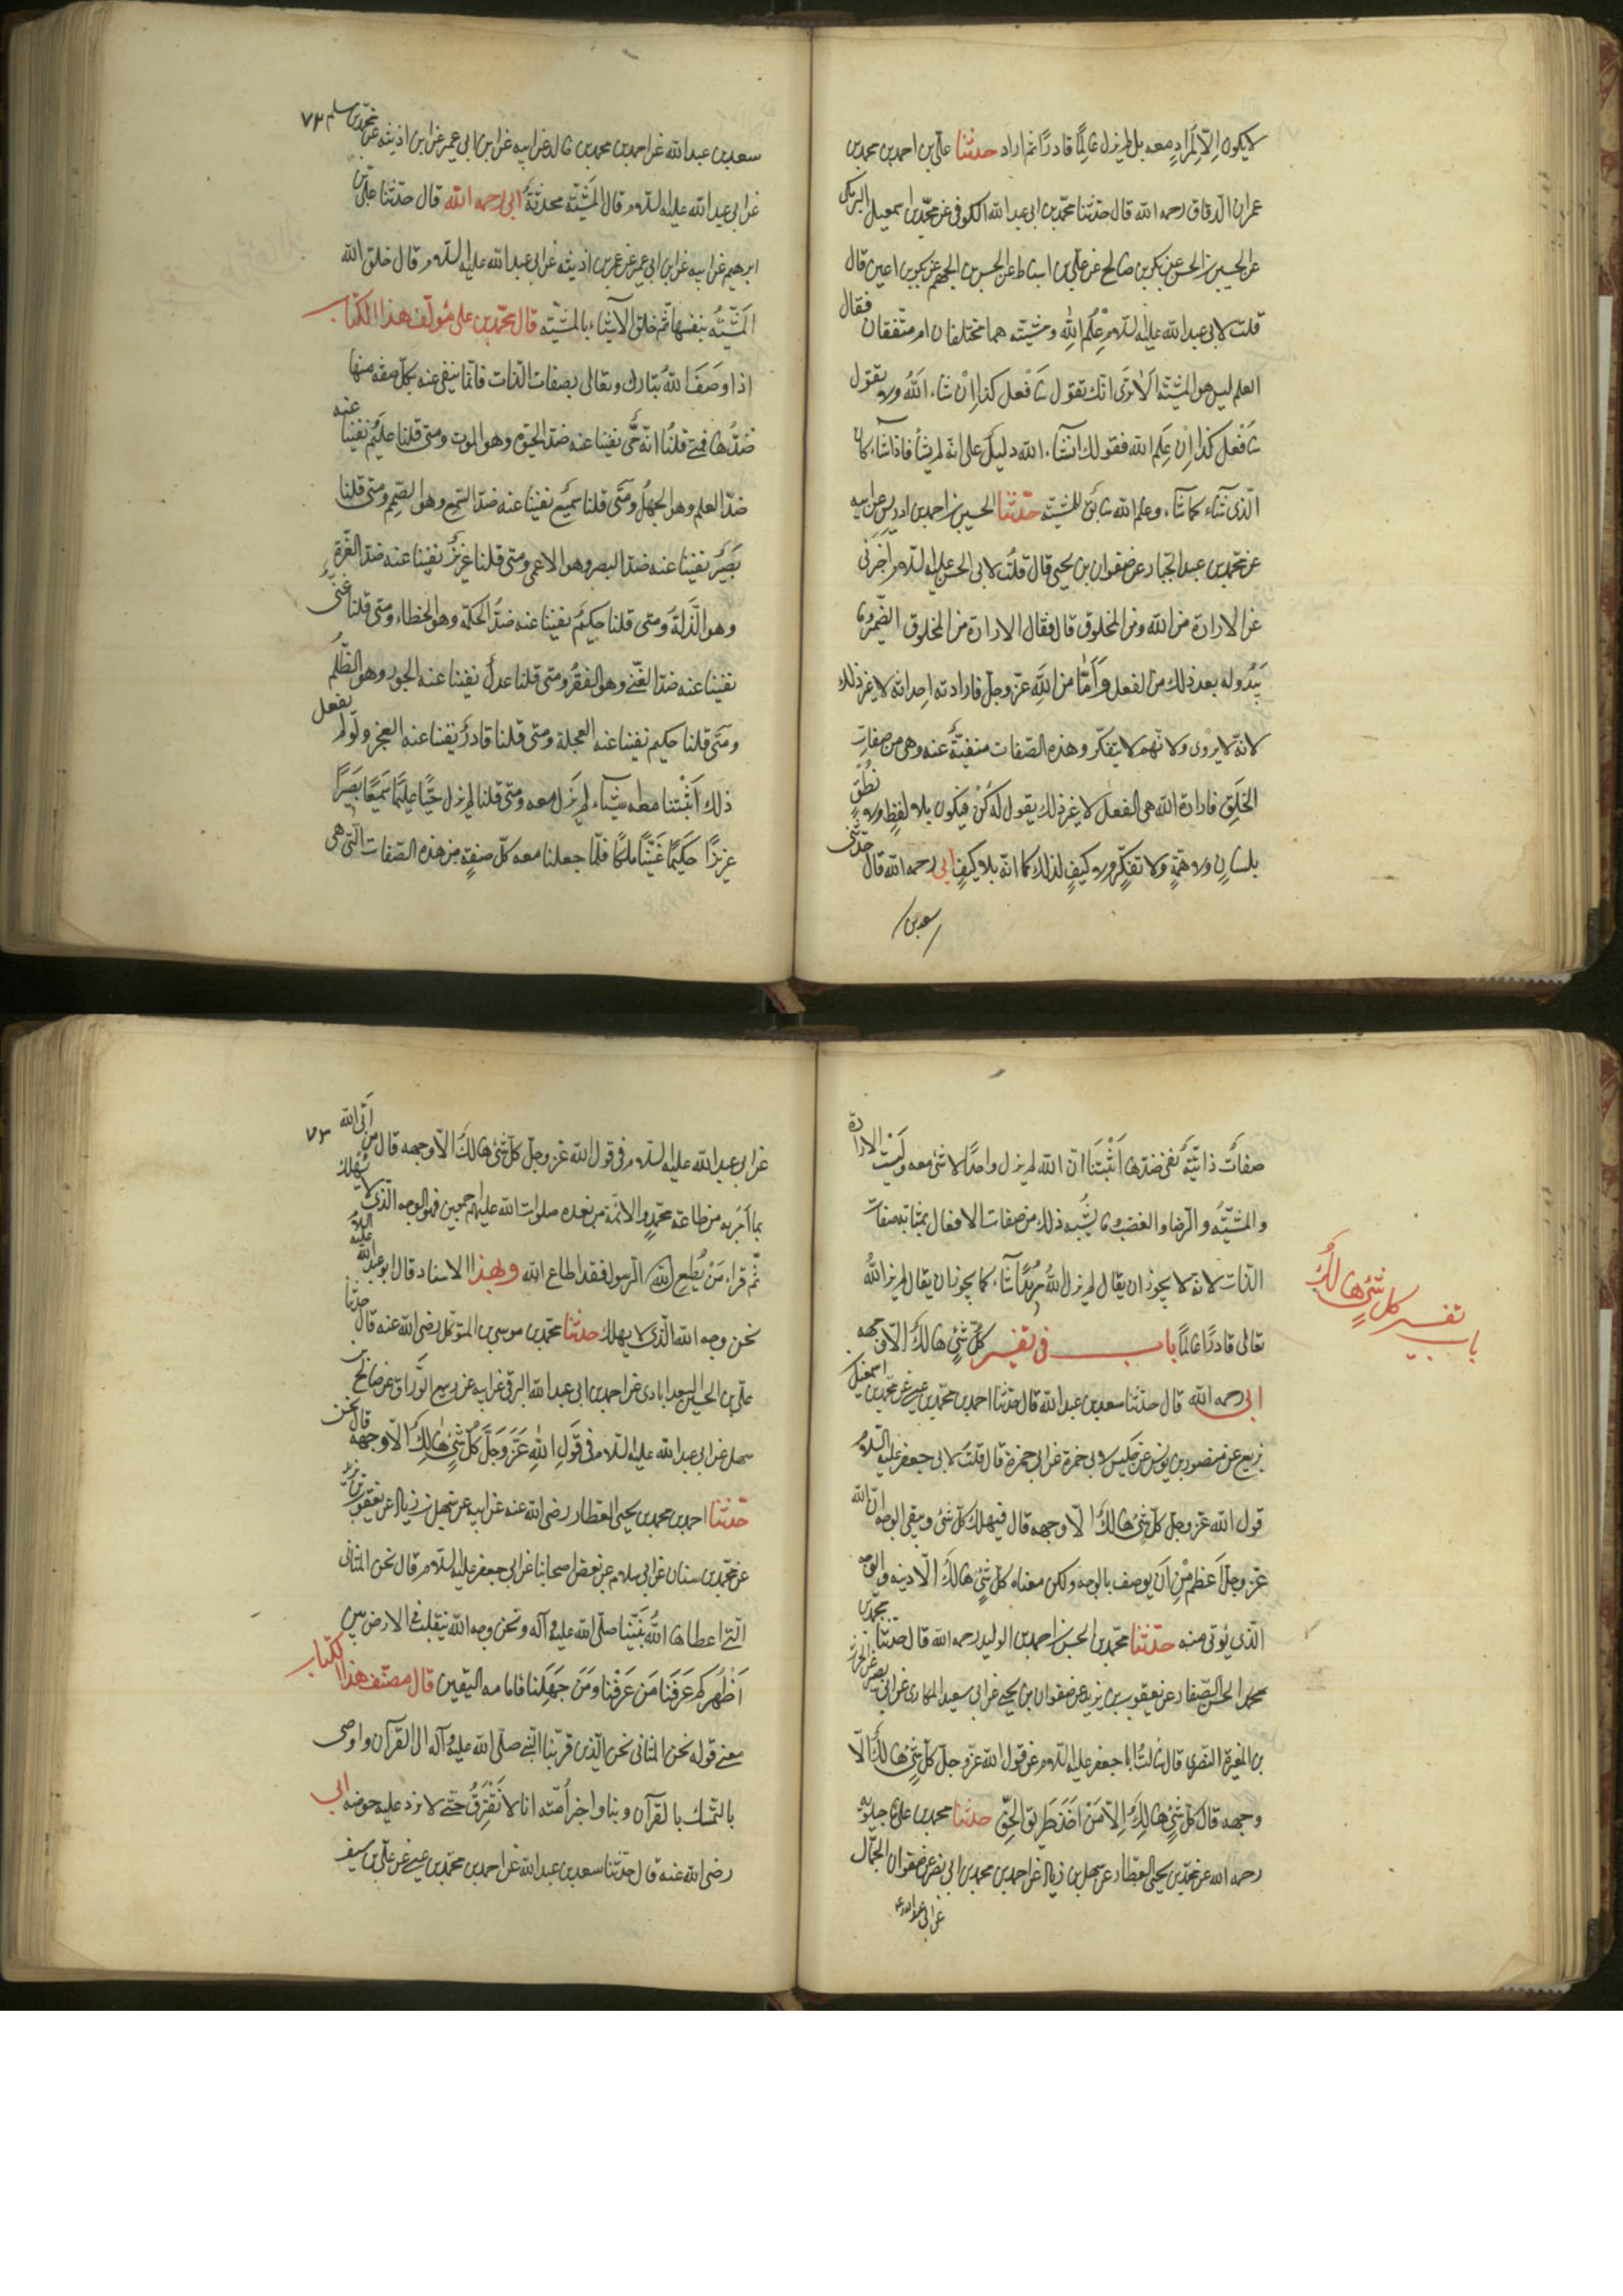 لا يكون الا لمراد معه بل لم يزل عالما قادرا ثم اراد حدثنا علي بن احمد بن محمد بن
عمران الدقاق رحمه الله قال حدثنا محمد بن ابي عبد الله الكوفي عن محمد بن اسمعيل البرمكي
عن الحسين بن الحسن عن بكر بن صالح عن علي بن اسباط عن الحسن بن الجهم عن بكير بن اعين قال
قلت لابي عبد الله عليه السلام علم الله ومشيته هما مختلفان ام متفقان فقال
العلم ليس هو المشية الا ترى انك تقول سافعل كذا ان شاء الله ولا تقول
سافعل كذا ان علم الله فقولك ان شاء الله دليل على انه لم يشأ فاذا شاء كان
الذي شاء كما شاء وعلم الله سابق للمشية حدثنا الحسين بن احمد بن ادريس عن ابيه
عن محمد بن عبد الجبار عن صفوان بن يحيى قال قلت لابي الحسن عليه السلام اخبرني
عن الارادة من الله ومن المخلوق قال فقال الارادة من المخلوق الضمير وما
يبدو له بعد ذلك من الفعل واما من الله عز وجل فارادته احداثه لا غير ذلك
لانه لا يروي ولا يهم ولا يتفكر وهذه الصفات منفية عنه وهي من صفات
الخلق فارادة الله هي الفعل لا غير ذلك يقول له كن فيكون بلا لفظ ولا نطق
بلسان ولا همة ولا تفكر ولا كيف لذلك كما انه بلا كيف ابي رحمه الله قال حدثني
سعد بن
٧٢
سعد بن عبد الله عن احمد بن محمد بن خالد عن ابيه عن ابن ابي عمير عن ابن اذينه عن محمد بن مسلم
عن ابي عبد الله عليه السلام قال المشية محدثة ابي رحمه الله قال حدثنا علي بن
ابرهيم عن ابيه عن ابن ابي عمير عن عمر بن اذينه عن ابي عبد الله عليه السلام قال خلق الله
المشية بنفسها ثم خلق الاشياء بالمشية قال محمد بن علي مؤلف هذا الكتاب
اذا وصف الله تبارك وتعالى بصفات الذات فانما ينفى عنه بكل صفه منها
ضدها فمتى قلنا انه حي نفينا عنه ضد الحيوة وهو الموت ومتى قلنا عليم نفينا عنه
ضد العلم وهو الجهل ومتى قلنا سميع نفينا عنه ضد السمع وهو الصمم ومتى قلنا
بصير نفينا عنه ضد البصر وهو الاعمى ومتى قلنا عزيز نفينا عنه ضد العزة
وهو الذلة ومتى قلنا حكيم نفينا عنه ضد الحكمة وهو الخطاء ومتى قلنا غني
نفينا عنه ضد الغنى وهو الفقر ومتى قلنا عدل نفينا عنه الجور وهو الظلم
ومتى قلنا حكيم نفينا عنه العجلة ومتى قلنا قادر نفينا عنه العجز ولو لم يفعل
ذلك اثبتنا معه اشياء لم يزل معه ومتى قلنا لم يزل حيا عليما سميعا بصيرا
عزيزا حكيما غنيا ملكا فلما جعلنا معه كل صفة من هذه الصفات التي هي
صفات ذاتية نفى ضدها اثبتنا ان الله لم يزل واحدا لا شئ معه وليست الارادة
والمشية والرضا والغضب وما يشبه ذلك من صفات الافعال بمثابة صفات
الذات لانه لا يجوز ان يقال لم يزل الله مريدا شاء كما يجوز ان يقال لم يزل الله
تعالى قادرا عالما باب في تفسير كل شئ هالك الا وجهه
باب تفسير كل شئ هالك
ابي رحمه الله قال حدثنا سعد بن عبد الله قال حدثنا احمد بن محمد بن عيسى عن محمد بن اسمعيل
بزيع عن منصور بن يونس عن جليس لابي حمزة عن ابي حمزة قال قلت لابي جعفر عليه السلام
قول الله عز وجل كل شئ هالك الا وجهه قال فيهلك كل شئ ويبقى الوجه ان الله
عز وجل اعظم من ان يوصف بالوجه ولكن معناه كل شئ هالك الا دينه والوجه
الذي يؤتى منه حدثنا محمد بن الحسن بن احمد بن الوليد رحمه الله قال حدثنا محمد بن
الحسن الصفار عن يعقوب بن يزيد عن صفوان بن يحيى عن ابي سعيد المكاري عن ابي بصير عن الحرث
بن المغيرة النصري قال سالت ابا جعفر عليه السلام عن قول الله عز وجل كل شئ هالك الا
وجهه قال كل شئ هالك الا من اخذ طريق الحق حدثنا محمد بن علي ماجيلويه
رحمه الله عن محمد بن يحيى العطار عن سهل بن زياد عن احمد بن محمد بن ابي نصر عن صفوان الجمال
عن ابي عبد الله ع
٧٣
عن ابي عبد الله عليه السلام في قول الله عز وجل كل شئ هالك الا وجهه قال من اتى الله
بما امر به من طاعة محمد والائمة من بعده صلوات الله عليهم اجمعين فهو الوجه الذي لا يهلك
ثم قراء من يطع الرسول فقد اطاع الله وبهذا الاسناد قال ابو عبد الله عليه السلام
نحن وجه الله الذي لا يهلك حدثنا محمد بن موسى بن المتوكل رضي الله عنه قال حدثنا
علي بن الحسين السعدابادي عن احمد بن ابي عبد الله البرقي عن ابيه عن ربيع الوراق عن صالح بن
سهل عن ابي عبد الله عليه السلام في قول الله عز وجل كل شئ هالك الا وجهه قال نحن
حدثنا احمد بن محمد بن يحيى العطار رضي الله عنه عن ابيه عن سهل بن زياد عن يعقوب بن يزيد
عن محمد بن سنان عن ابي سلام عن بعض اصحابنا عن ابي جعفر عليه السلام قال نحن المثاني
التي اعطاها الله نبينا صلى الله عليه وآله ونحن وجه الله نتقلب في الارض بين
اظهركم عرفنا من عرفنا ومن جهلنا فامامه اليقين قال مصنف هذا الكتاب
معنى قوله نحن المثاني نحن الذين قربنا النبي صلى الله عليه وآله الى القرآن واوصى
بالتمسك بالقرآن وبنا واخبر امته انا لا نفترق حتى لا نرد عليه حوضه ابي
رضي الله عنه قال حدثنا سعد بن عبد الله عن احمد بن محمد بن عيسى عن علي بن سيف